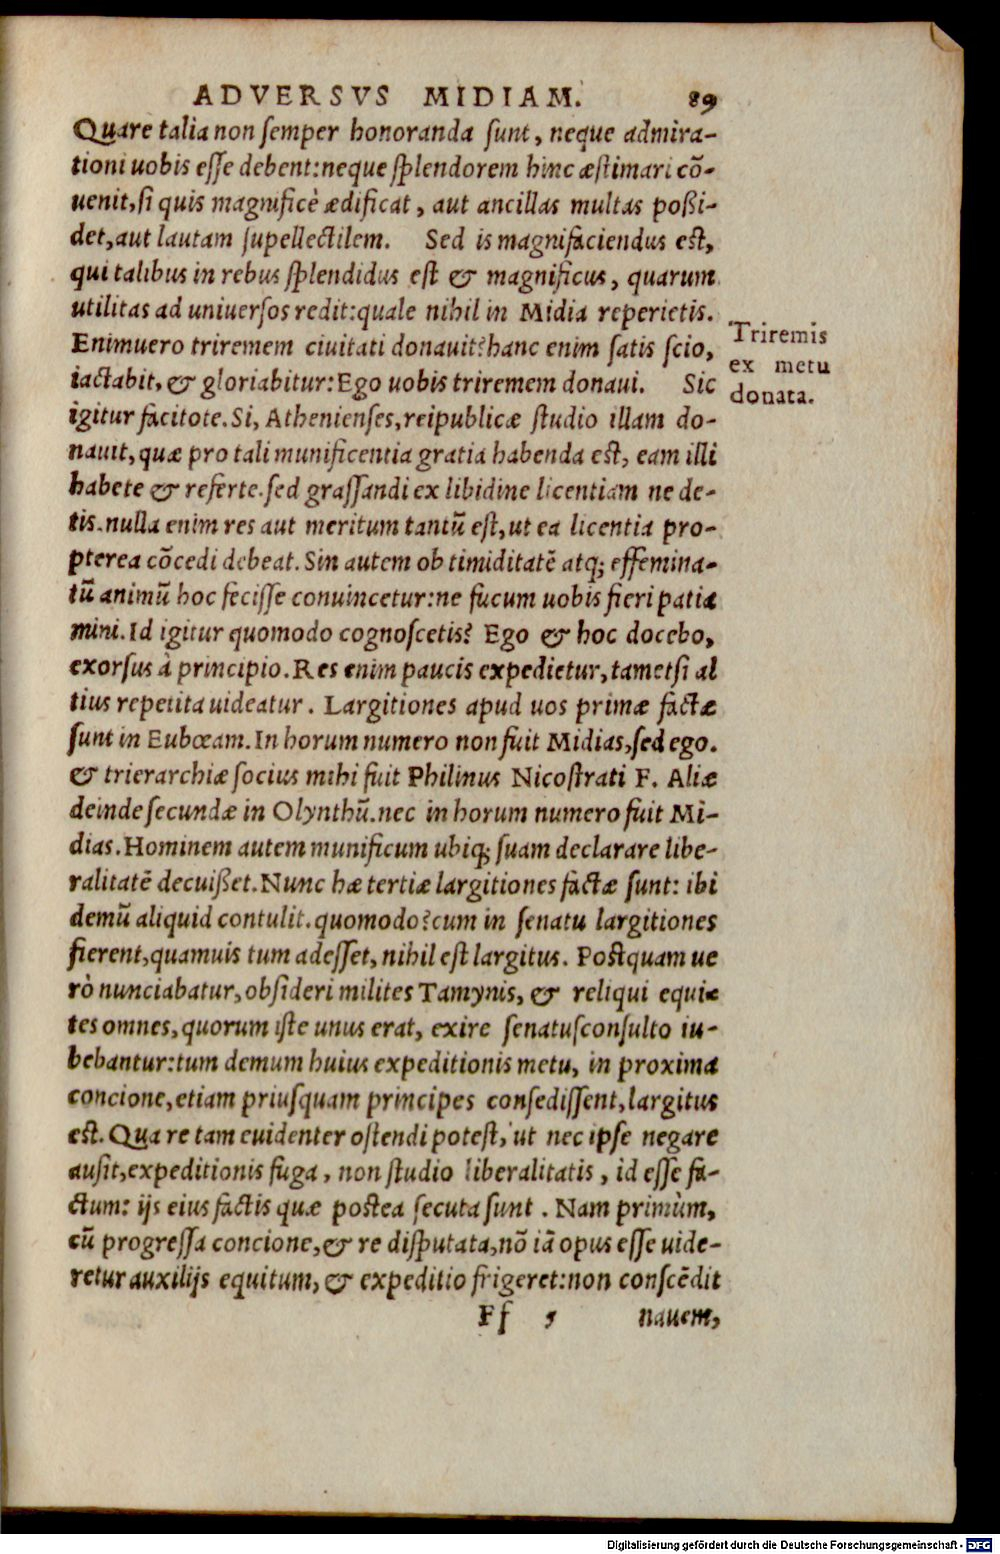 ADVERSVS MIDIAM. 89
Quare talia non semper honoranda sunt, neque admira-
tioni uobis esse debent: neque splendorem hinc æstimari cō-
uenit, si quis magnificè ædificat, aut ancillas multas poßi-
det, aut lautam supellectilem. Sed is magnifaciendus est,
qui talibus in rebus splendidus est & magnificus, quarum
utilitas ad uniuersos redit: quale nihil in Midia reperietis.
Enimuero triremem ciuitati donauit? hanc enim satis scio,
iactabit, & gloriabitur: Ego uobis triremem donaui. Sic
igitur facitote. Si, Athenienses, reipublicæ studio illam do-
nauit, quæ pro tali munificentia gratia habenda est, eam illi
habete & referte. sed grassandi ex libidine licentiam ne de-
tis. nulla enim res aut meritum tantū est, ut ea licentia pro-
pterea cōcedi debeat. Sin autem ob timiditatē atq; effemina-
tū animū hoc fecisse conuincetur: ne fucum uobis fieri patia
mini. Id igitur quomodo cognoscetis? Ego & hoc docebo,
exorsus à principio. Res enim paucis expedietur, tametsi al
tius repetita uideatur. Largitiones apud uos primæ factæ
sunt in Eubœam. In horum numero non fuit Midias, sed ego.
& trierarchiæ socius mihi fuit Philinus Nicostrati F. Aliæ
deinde secundæ in Olynthū. nec in horum numero fuit Mi-
dias. Hominem autem munificum ubiq; suam declarare libe-
ralitatē decuißet. Nunc hæ tertiæ largitiones factæ sunt: ibi
demū aliquid contulit. quomodo? cum in senatu largitiones
fierent, quamuis tum adesset, nihil est largitus. Postquam ue
rò nunciabatur, obsideri milites Tamynis, & reliqui equi-
tes omnes, quorum iste unus erat, exire senatusconsulto iu-
bebantur: tum demum huius expeditionis metu, in proxima
concione, etiam priusquam principes consedissent, largitus
est. Qua re tam euidenter ostendi potest, ut nec ipse negare
ausit, expeditionis fuga, non studio liberalitatis, id esse fa-
ctum: ijs eius factis quæ postea secuta sunt. Nam primùm,
cū progressa concione, & re disputata, nō iā opus esse uide-
retur auxilijs equitum, & expeditio frigeret: non conscēdit
Ff 5 nauem,
Triremis
ex metu
donata.
Digitalisierung gefördert durch die Deutsche Forschungsgemeinschaft - DFG